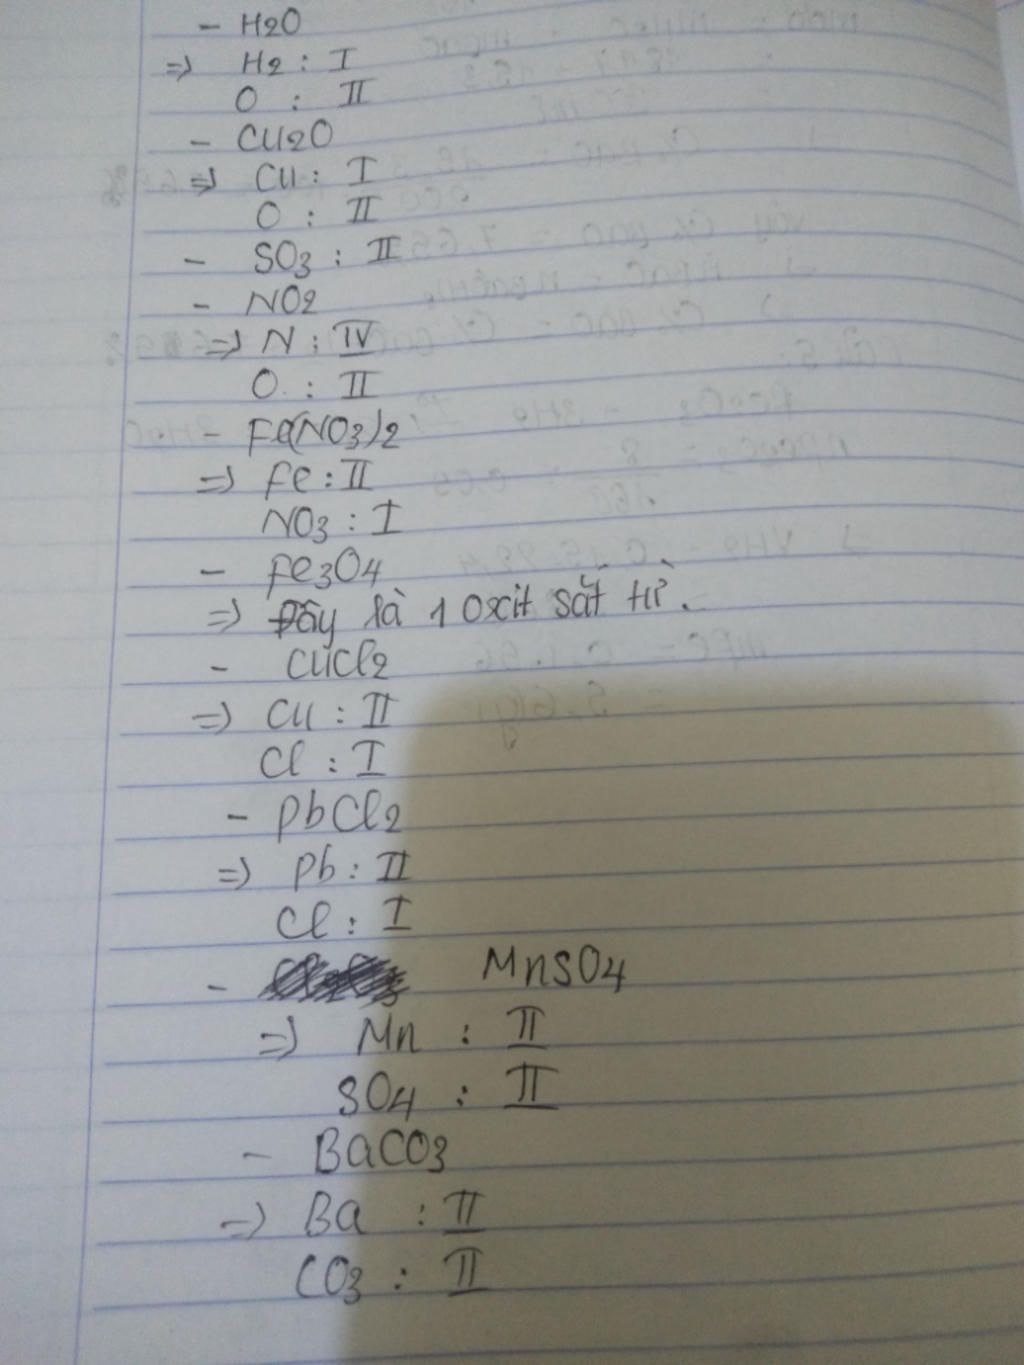 - H2O
=> H2 : I
O : II
- Cu2O
=> Cu : I
O : II
- SO3 : II
- NO2
=> N : IV
O : II
- Fe(NO3)2
=> Fe : II
NO3 : I
- Fe3O4
=> Đây là 1 oxit sắt từ.
- CuCl2
=> Cu : II
Cl : I
- PbCl2
=> Pb : II
Cl : I
- MnSO4
=> Mn : II
SO4 : II
- BaCO3
=> Ba : II
CO3 : II